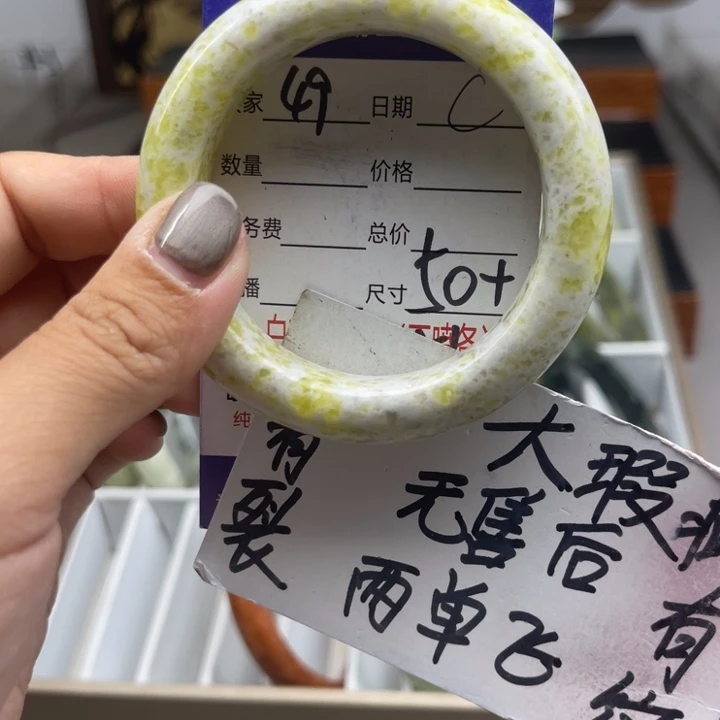 家 49 日期 C
数量 价格
务费 总价
播 尺寸 50+
白
纯
有裂
大瑕疵
无售后
两单飞
有